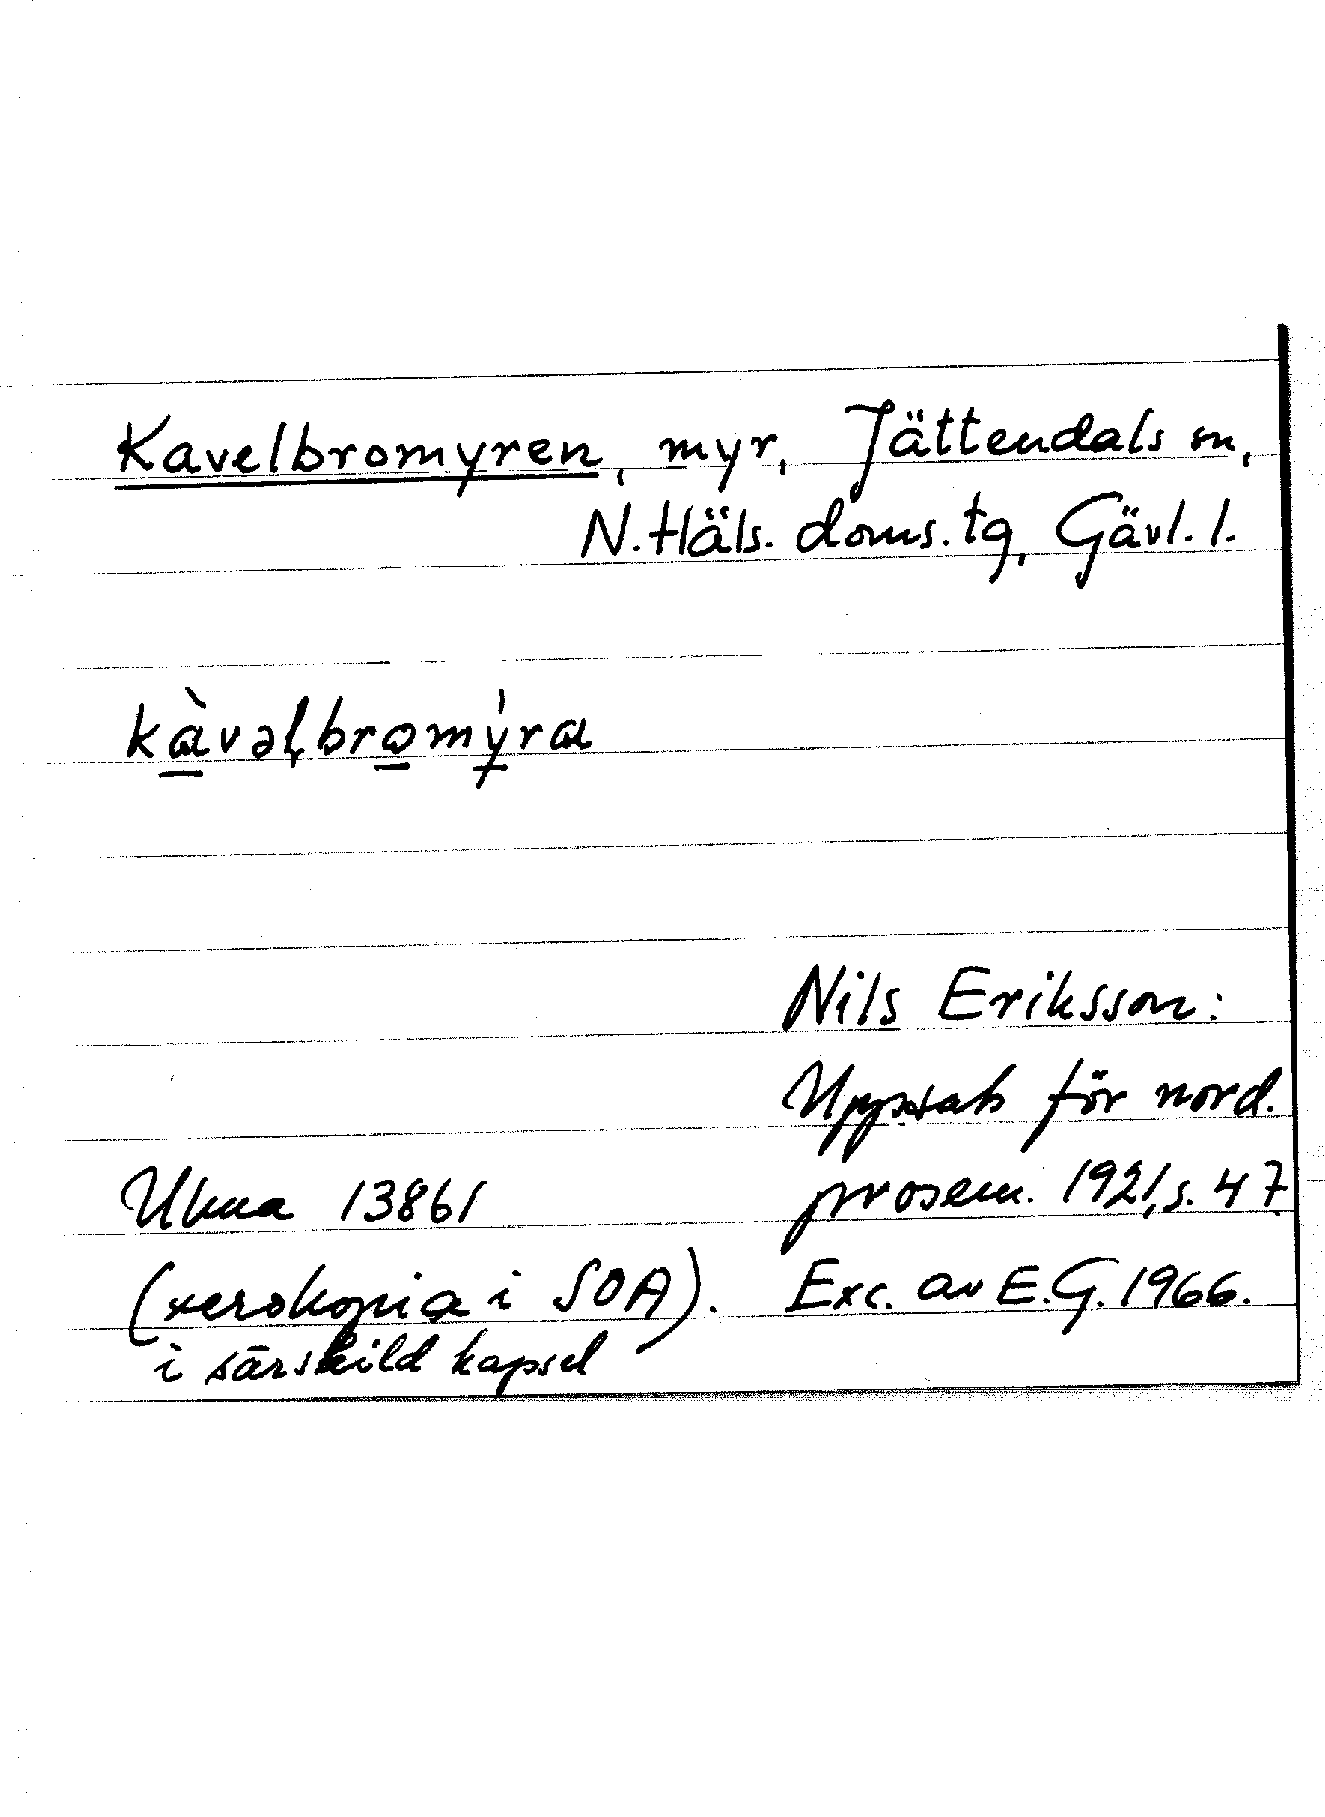 Kavelbromyren, myr, Jättendals sn,
N. Häls. doms. tg, Gävl. l.
kàvəḷbromýra
Nils Eriksson:
Uppsats för nord.
prosem. 1921, s. 47
Ulma 13861
(xerokopia i SOA). Exc. av E.G. 1966.
i särskild kapsel